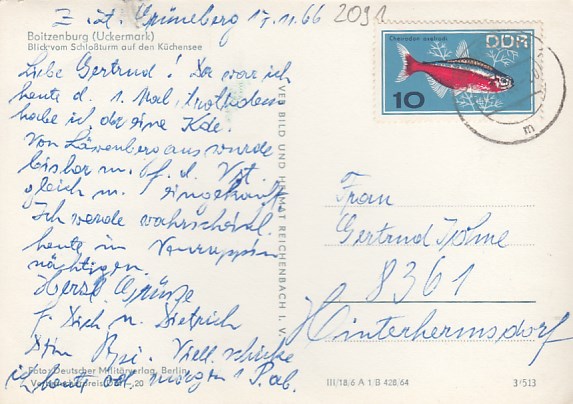 Z. Zt. Grüneberg 17.11.66
2091
Boitzenburg (Uckermark)
Blick vom Schloßturm auf den Küchensee
Liebe Gertrud! Da war ich
heute d. 1. Mal, trotzdem
habe ich da eine Kde.
Von Löwenberg aus wurde
bisher m. f. d.
gleich m. eingekauft.
Ich werde wahrscheinl.
heute in Neuruppin
nächtigen.
Herzl. Grüsze
f. Dich u. Dietrich
Dein Viell. schicke
ich heute od. morgen 1 P. ab.
Foto: Deutscher Militärverlag, Berlin
VEB BILD UND HEIMAT REICHENBACH I. V.
Cheirodon axelrodi
DDR
10
Frau
Gertrud
8361
Hinterhermsdorf
III/18/6 A 1/B 428/64
3/513